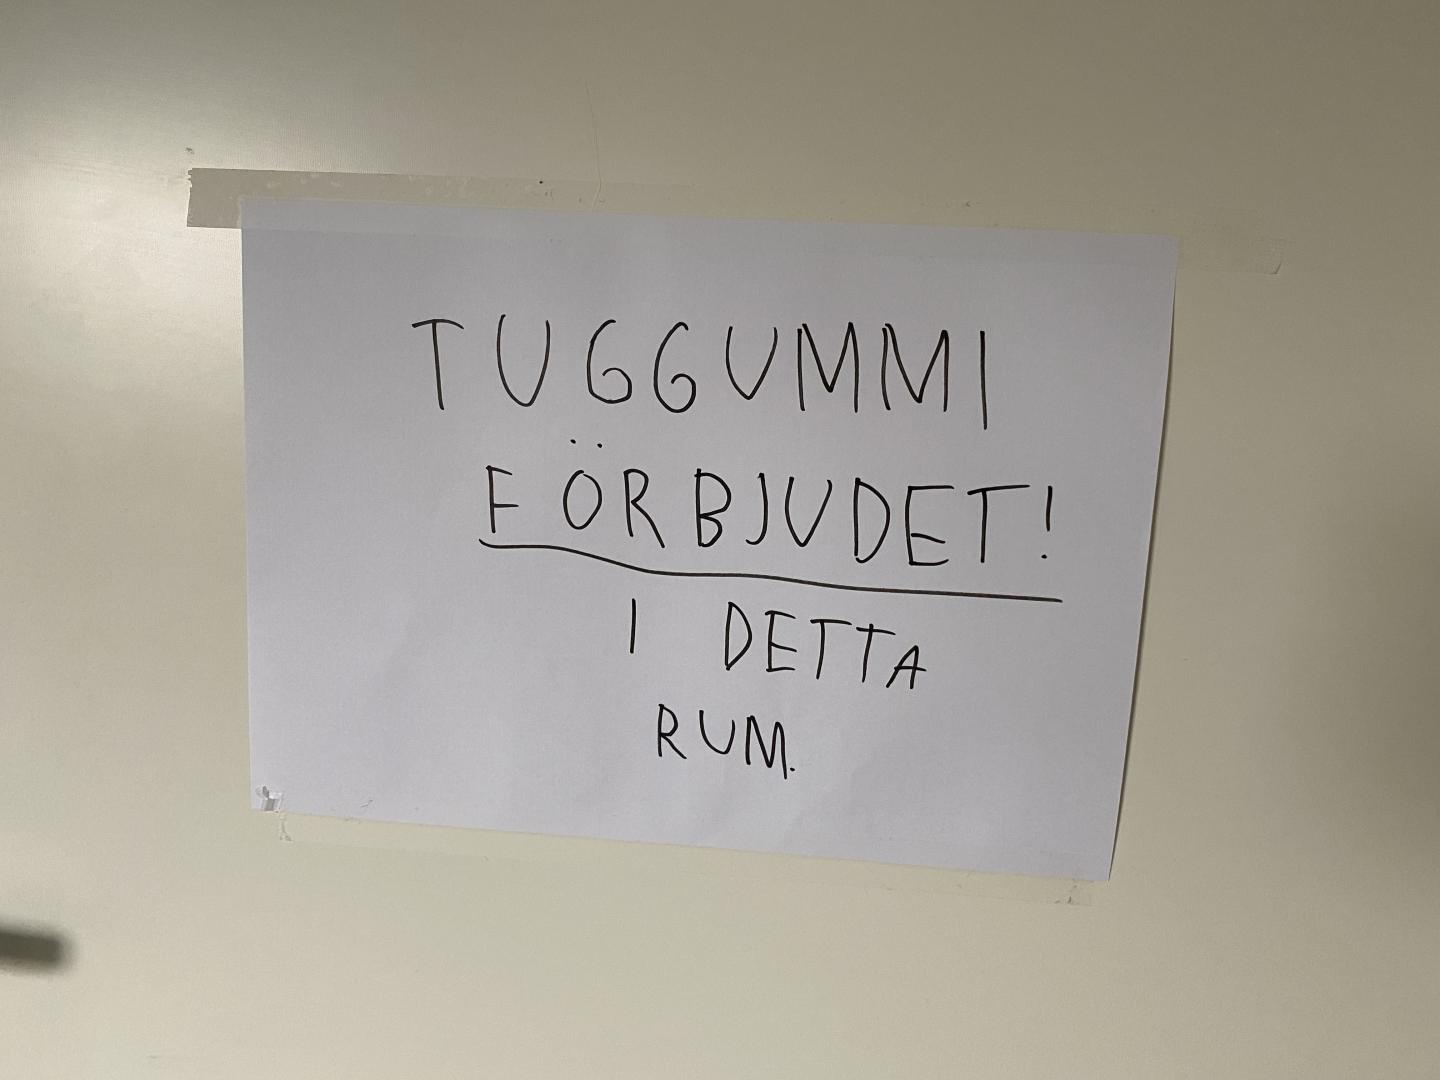 TUGGUMMI
FÖRBJUDET!
I DETTA
RUM.